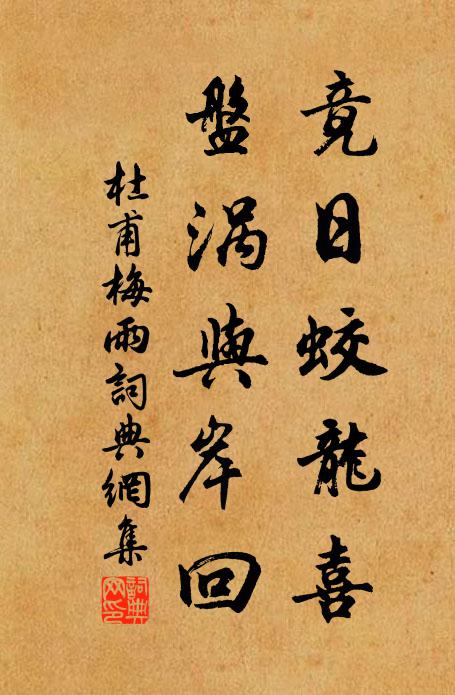 竟日蛟龍喜
盤渦與岸回
杜甫梅雨詞典網集
詞典
网印